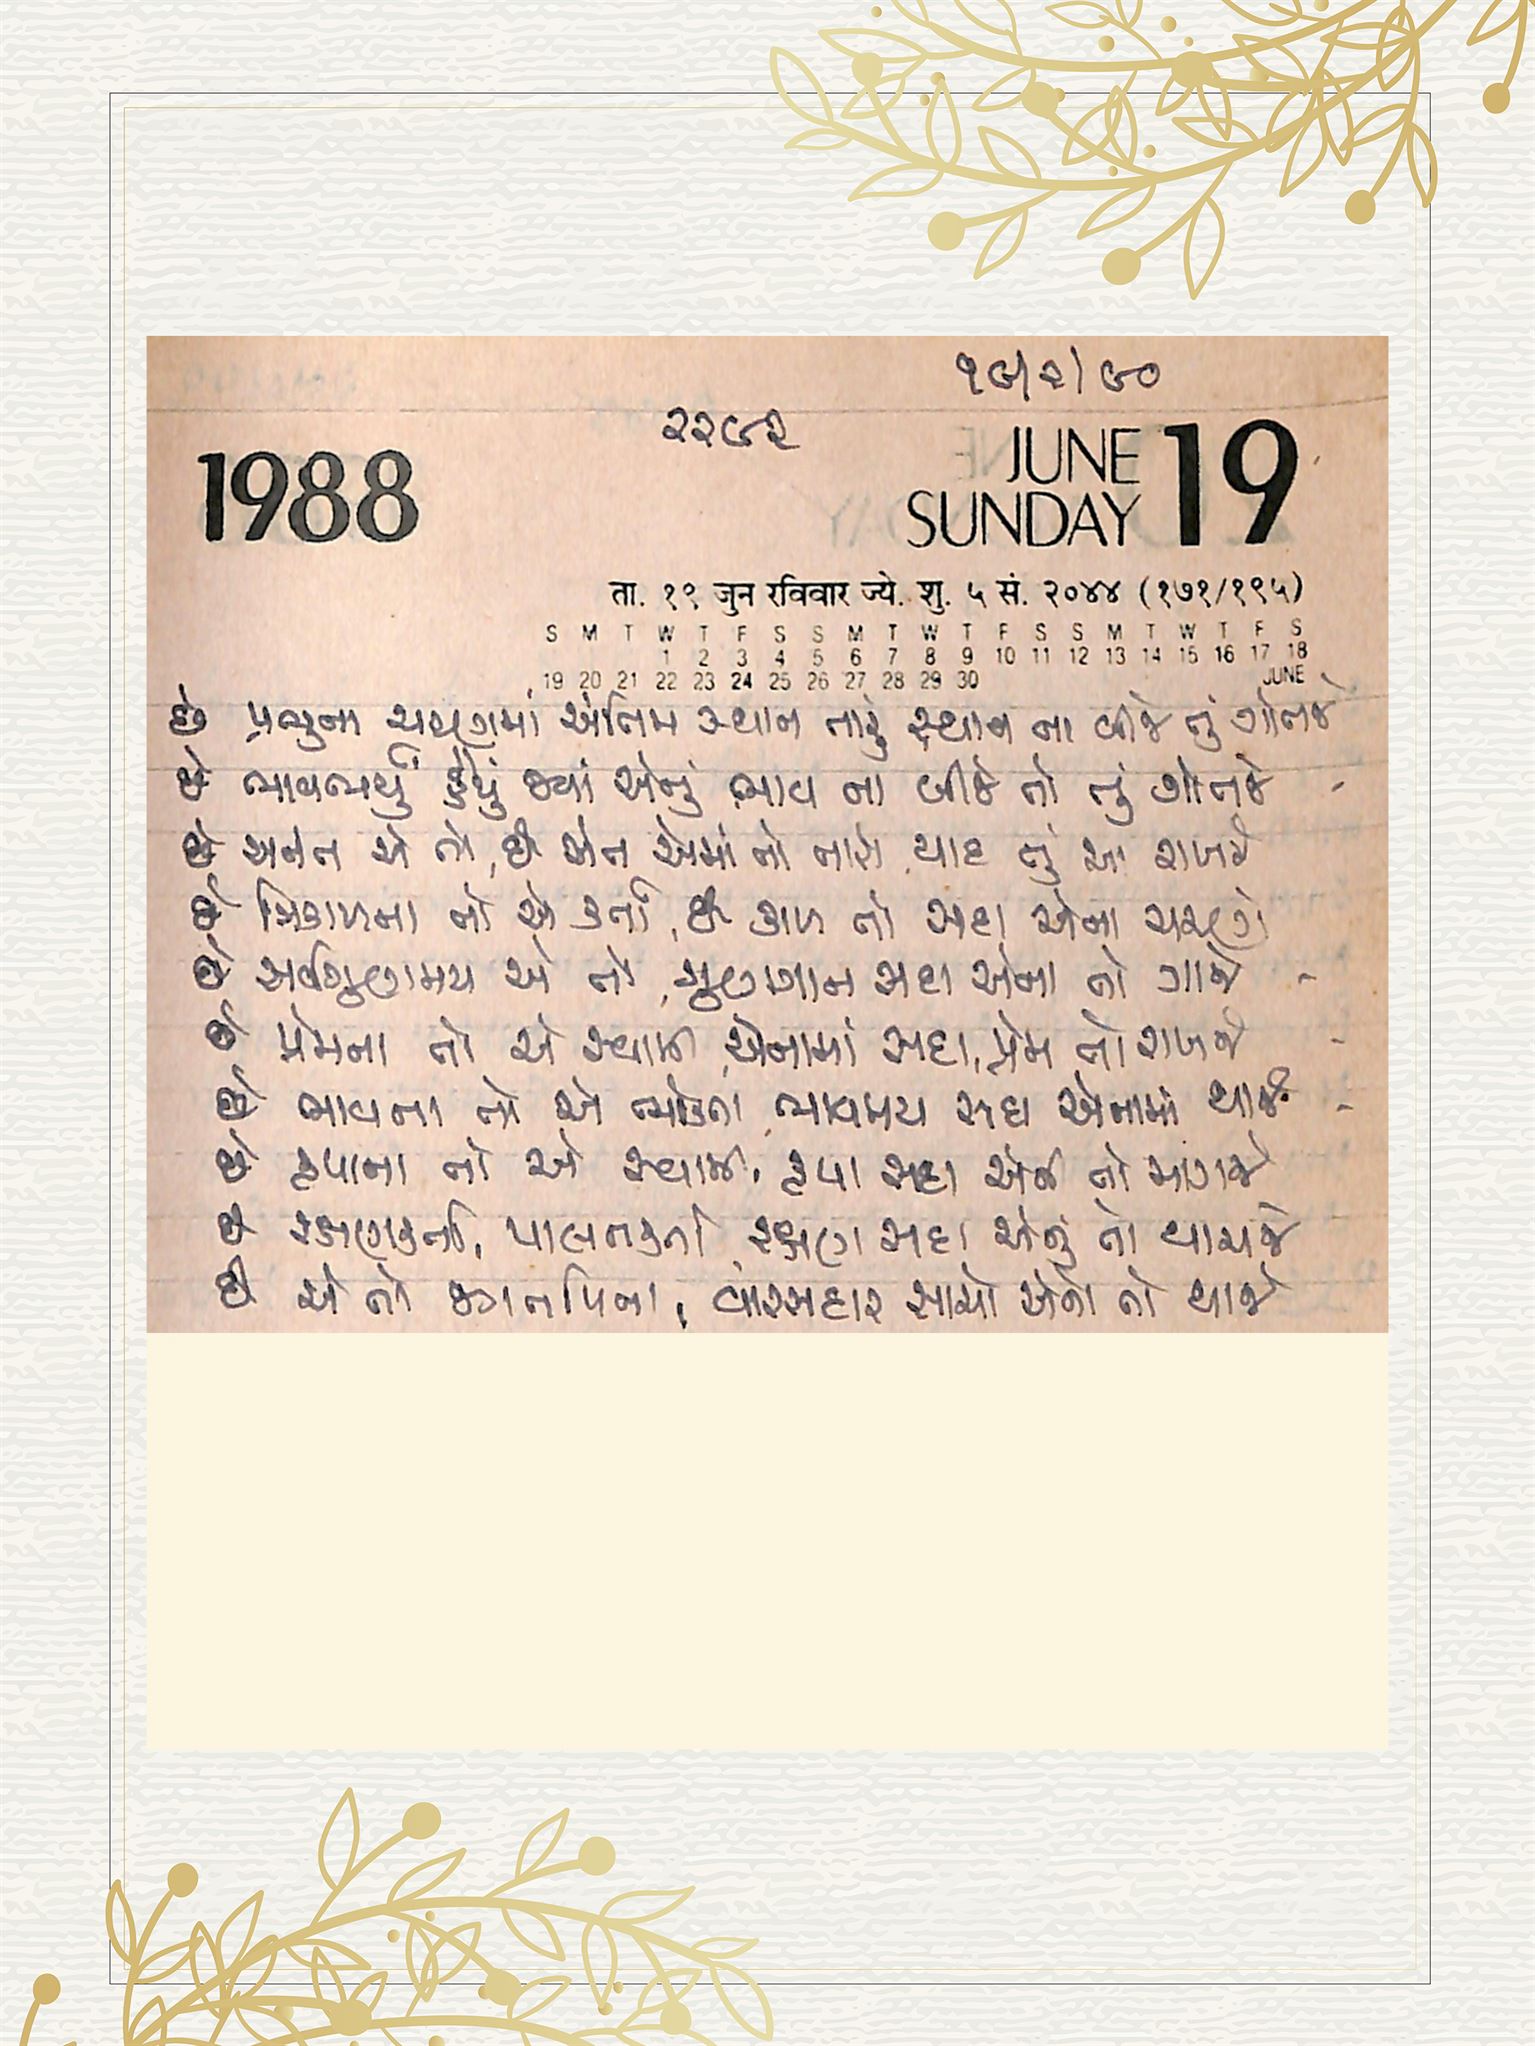 ૧૯/૨/૯૦
૨૨૯૨
1988
JUNE
SUNDAY 19
ता. १९ जुन रविवार ज्ये. शु. ५ सं. २०४४ (१७१/१९५)
S M T W T F S S M T W T F S S M T W T F S
1 2 3 4 5 6 7 8 9 10 11 12 13 14 15 16 17 18
19 20 21 22 23 24 25 26 27 28 29 30 JUNE
છે પ્રભુના ચરણમાં અંતિમ સ્થાન તારું સ્થાન ના બીજે તું ગોતજે
છે ભાવભર્યું હૈયું જ્યાં એનું ભાવ ના બીજે તો તું ગોતજે
છે અનંત એ તો, છે અંત એમાં તો તારો યાદ તું આ રાખજે
છે ત્રિકાળના તો એ કર્તા, છે કાળ તો સદા એના ચરણે
છે સર્વગુણામય એ તો, ગુણગાન સદા એના તો ગાજે
છે પ્રેમના તો એ સ્વામી, એનામાં સદા, પ્રેમ તો રાખજે
છે ભાવના તો એ ભોક્તા, ભાવમય સદા એનામાં થાજે
છે કૃપાના તો એ સ્વામી, કૃપા સદા એની તો માગજે
છે રક્ષણકર્તા, પાલનકર્તા, રક્ષણ સદા એનું તો યાચજે
છે એ તો જગતપિતા, વારસદાર સાચો એનો તો થાજે